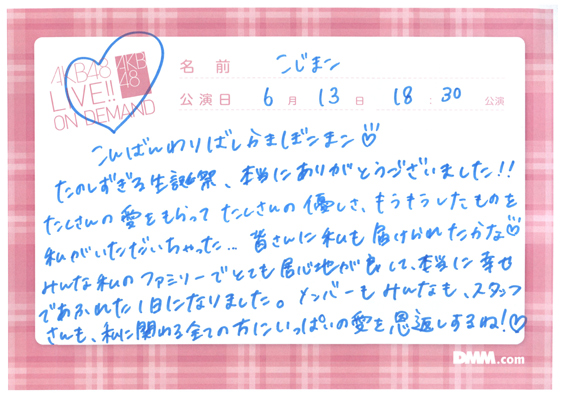 AKB48
LIVE!!
ON DEMAND
AKB
48
名前 こじまこ
公演日 6月 13日 18:30 公演
こんばんわりばしらきしぼんまこ♡
たのしすぎる生誕祭、本当にありがとうございました!!
たくさんの愛をもらって たくさんの優しさ、もうもうしたものを
私がいただいちゃった... 皆さんに私も届けられたかな♡
みんな私のファミリーでとても居心地が良くて、本当に幸せ
であふれた1日になりました。メンバーもみんなも、スタッフ
さんも、私に関わる全ての方にいっぱいの愛を恩返しするね!♡
DMM.com